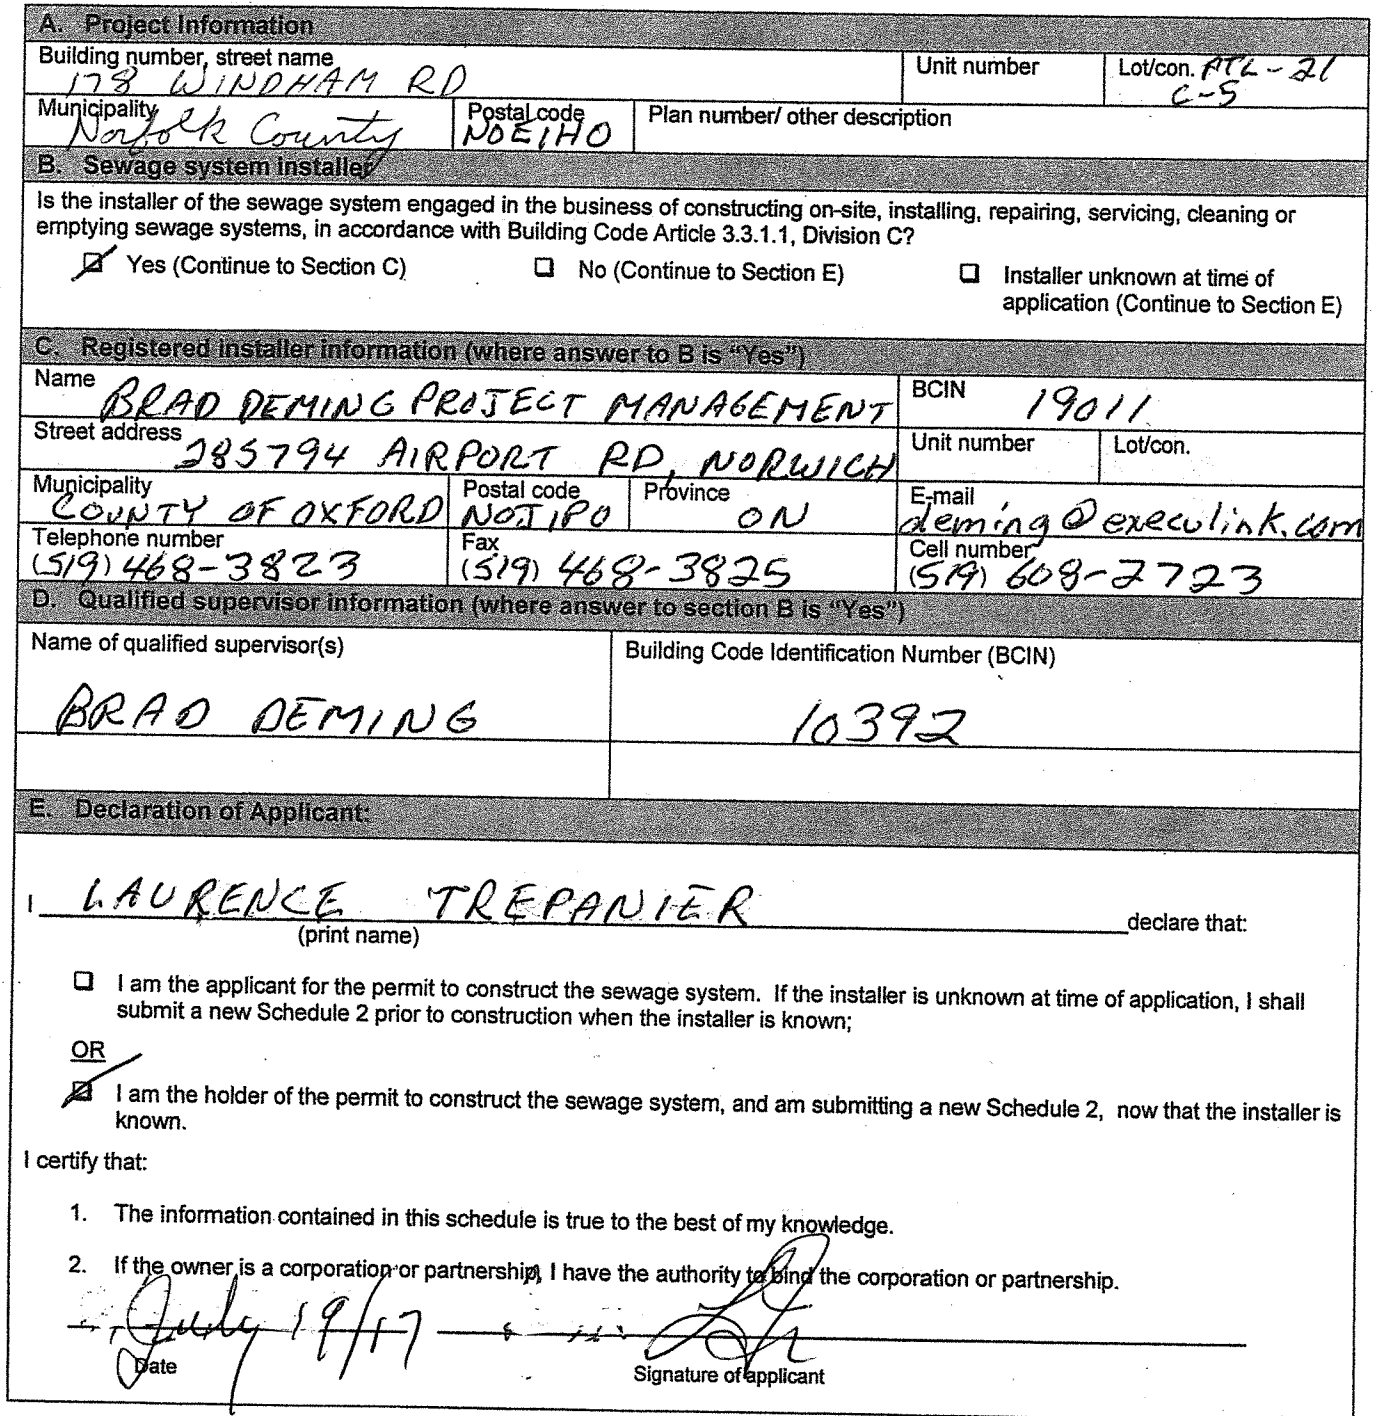 A. Project Information
Building number, street name
178 WINDHAM RD
Unit number
Lot/con. PTL-21
C-5
Municipality
Norfolk County
Postal code
N0E1H0
Plan number/ other description
B. Sewage system installer
Is the installer of the sewage system engaged in the business of constructing on-site, installing, repairing, servicing, cleaning or
emptying sewage systems, in accordance with Building Code Article 3.3.1.1, Division C?
Yes (Continue to Section C)
No (Continue to Section E)
Installer unknown at time of
application (Continue to Section E)
C. Registered installer information (where answer to B is "Yes")
Name
BRAD DEMING PROJECT MANAGEMENT
BCIN
19011
Street address
285794 AIRPORT RD, NORWICH
Unit number
Lot/con.
Municipality
COUNTY OF OXFORD
Postal code
N0J1P0
Province
ON
E-mail
deming@execulink.com
Telephone number
(519) 468-3823
Fax
(519) 468-3825
Cell number
(519) 608-2723
D. Qualified supervisor information (where answer to section B is "Yes")
Name of qualified supervisor(s)
Building Code Identification Number (BCIN)
BRAD DEMING
10392
E. Declaration of Applicant:
I LAURENCE TREPANIER declare that:
(print name)
I am the applicant for the permit to construct the sewage system. If the installer is unknown at time of application, I shall
submit a new Schedule 2 prior to construction when the installer is known;
OR
I am the holder of the permit to construct the sewage system, and am submitting a new Schedule 2, now that the installer is
known.
I certify that:
1. The information contained in this schedule is true to the best of my knowledge.
2. If the owner is a corporation or partnership, I have the authority to bind the corporation or partnership.
July 19/17
Date
Signature of applicant